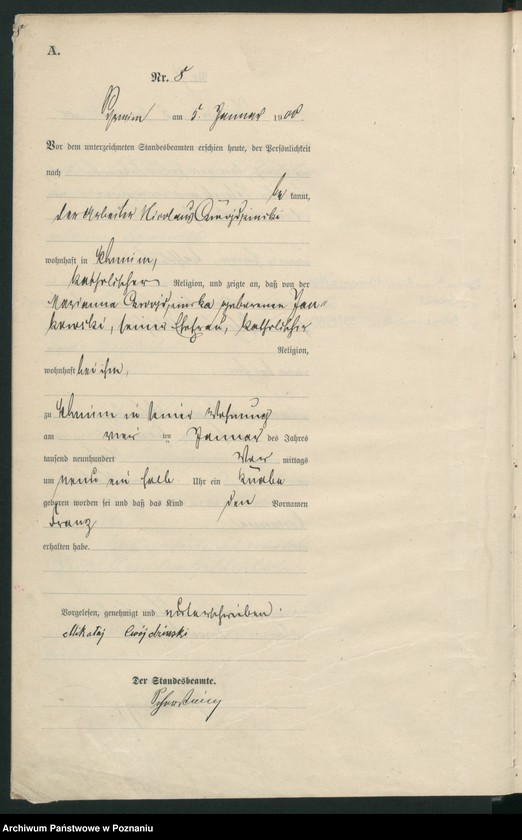 A.
Nr. 8
am 5. Januar 1900
Vor dem unterzeichneten Standesbeamten erschien heute, der Persönlichkeit
nach
be kannt,
der Arbeiter Nicolaus
wohnhaft in
katholischer Religion, und zeigte an, daß von der
Marianna geborene Jan-
kowski, seiner Ehefrau, katholischer
Religion,
wohnhaft bei ihm,
zu in seiner Wohnung
am vier ten Januar des Jahres
tausend neunhundert Vor mittags
um neun ein halb Uhr ein Knabe
geboren worden sei und daß das Kind den Vornamen
Franz
erhalten habe.
Vorgelesen, genehmigt und unterschrieben.
Mikołaj
Der Standesbeamte.
Archiwum Państwowe w Poznaniu